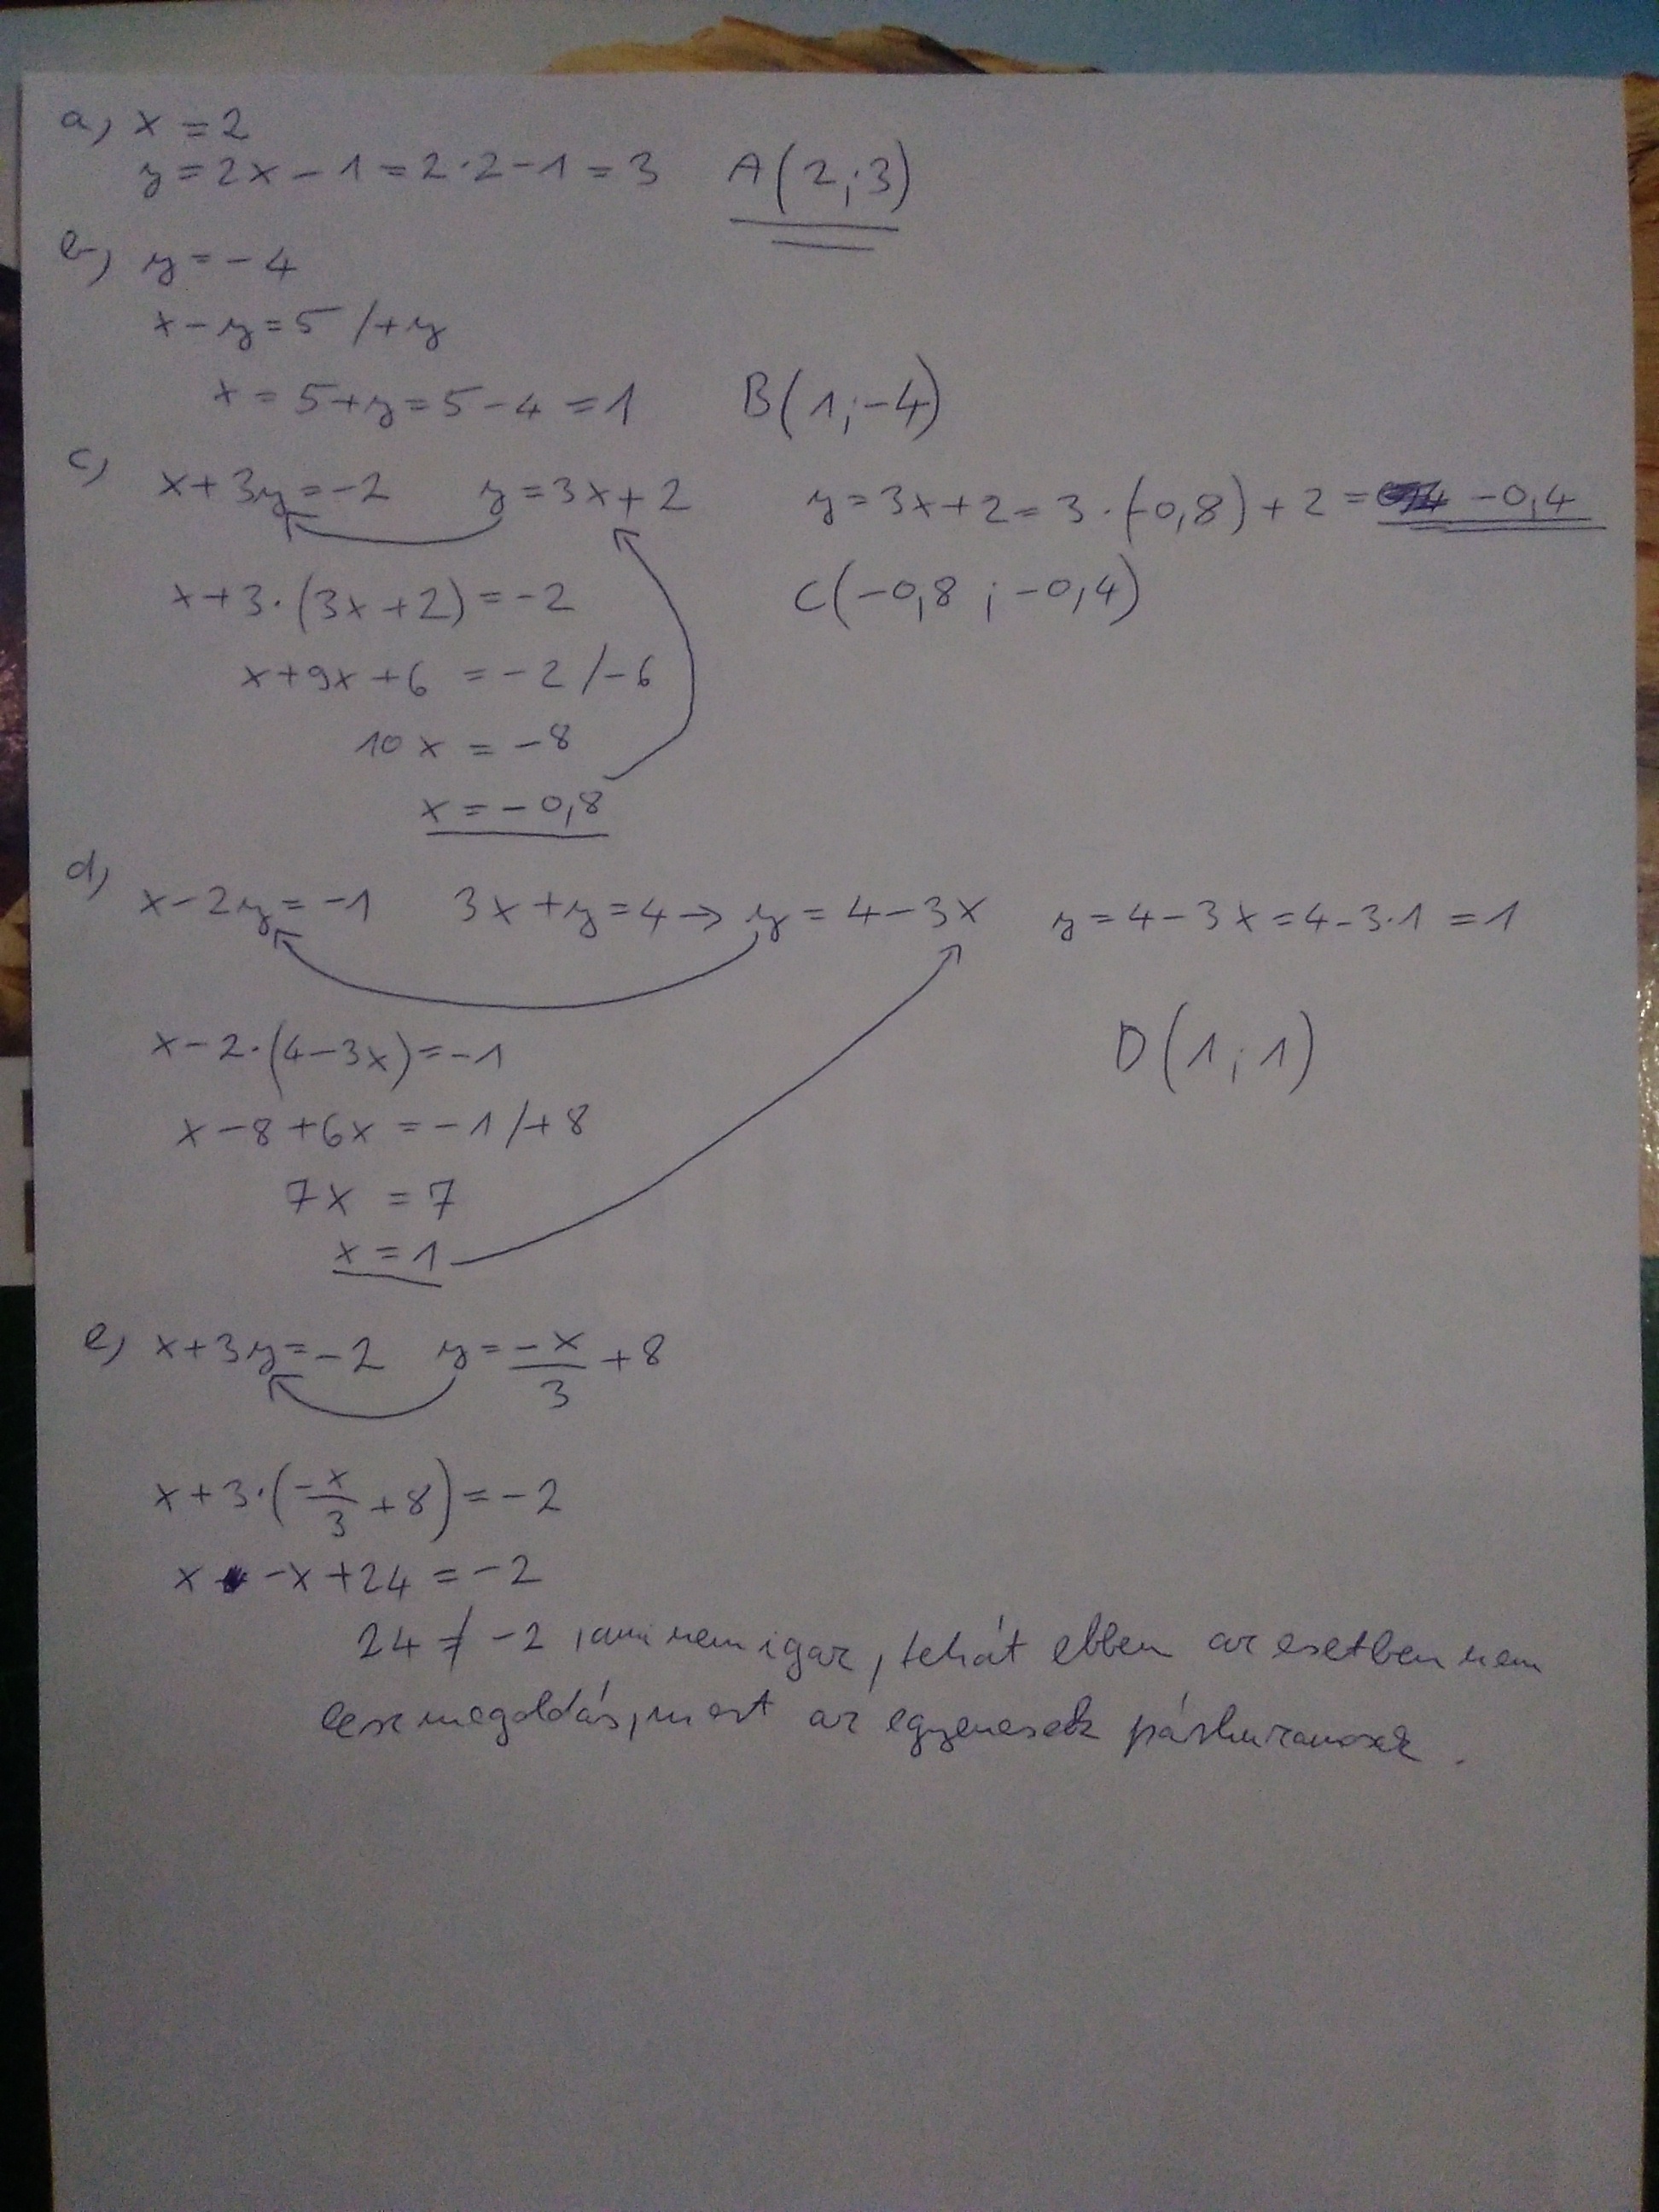 a, x = 2
y = 2x - 1 = 2·2 - 1 = 3   A(2;3)
b, y = -4
x - y = 5 /+y
x = 5+y = 5 - 4 = 1   B(1;-4)
c, x + 3y = -2   y = 3x + 2   y = 3x + 2 = 3·(-0,8) + 2 = -0,4
x + 3·(3x + 2) = -2   C(-0,8 ; -0,4)
x + 9x + 6 = -2 /-6
10x = -8
x = -0,8
d, x - 2y = -1   3x + y = 4 → y = 4 - 3x   y = 4 - 3x = 4 - 3·1 = 1
x - 2·(4 - 3x) = -1   D(1;1)
x - 8 + 6x = -1 /+8
7x = 7
x = 1
e, x + 3y = -2   y = -x/3 + 8
x + 3·(-x/3 + 8) = -2
x - x + 24 = -2
24 ≠ -2, ami nem igaz, tehát ebben az esetben nem
lesz megoldás, mert az egyenesek párhuzamosak.